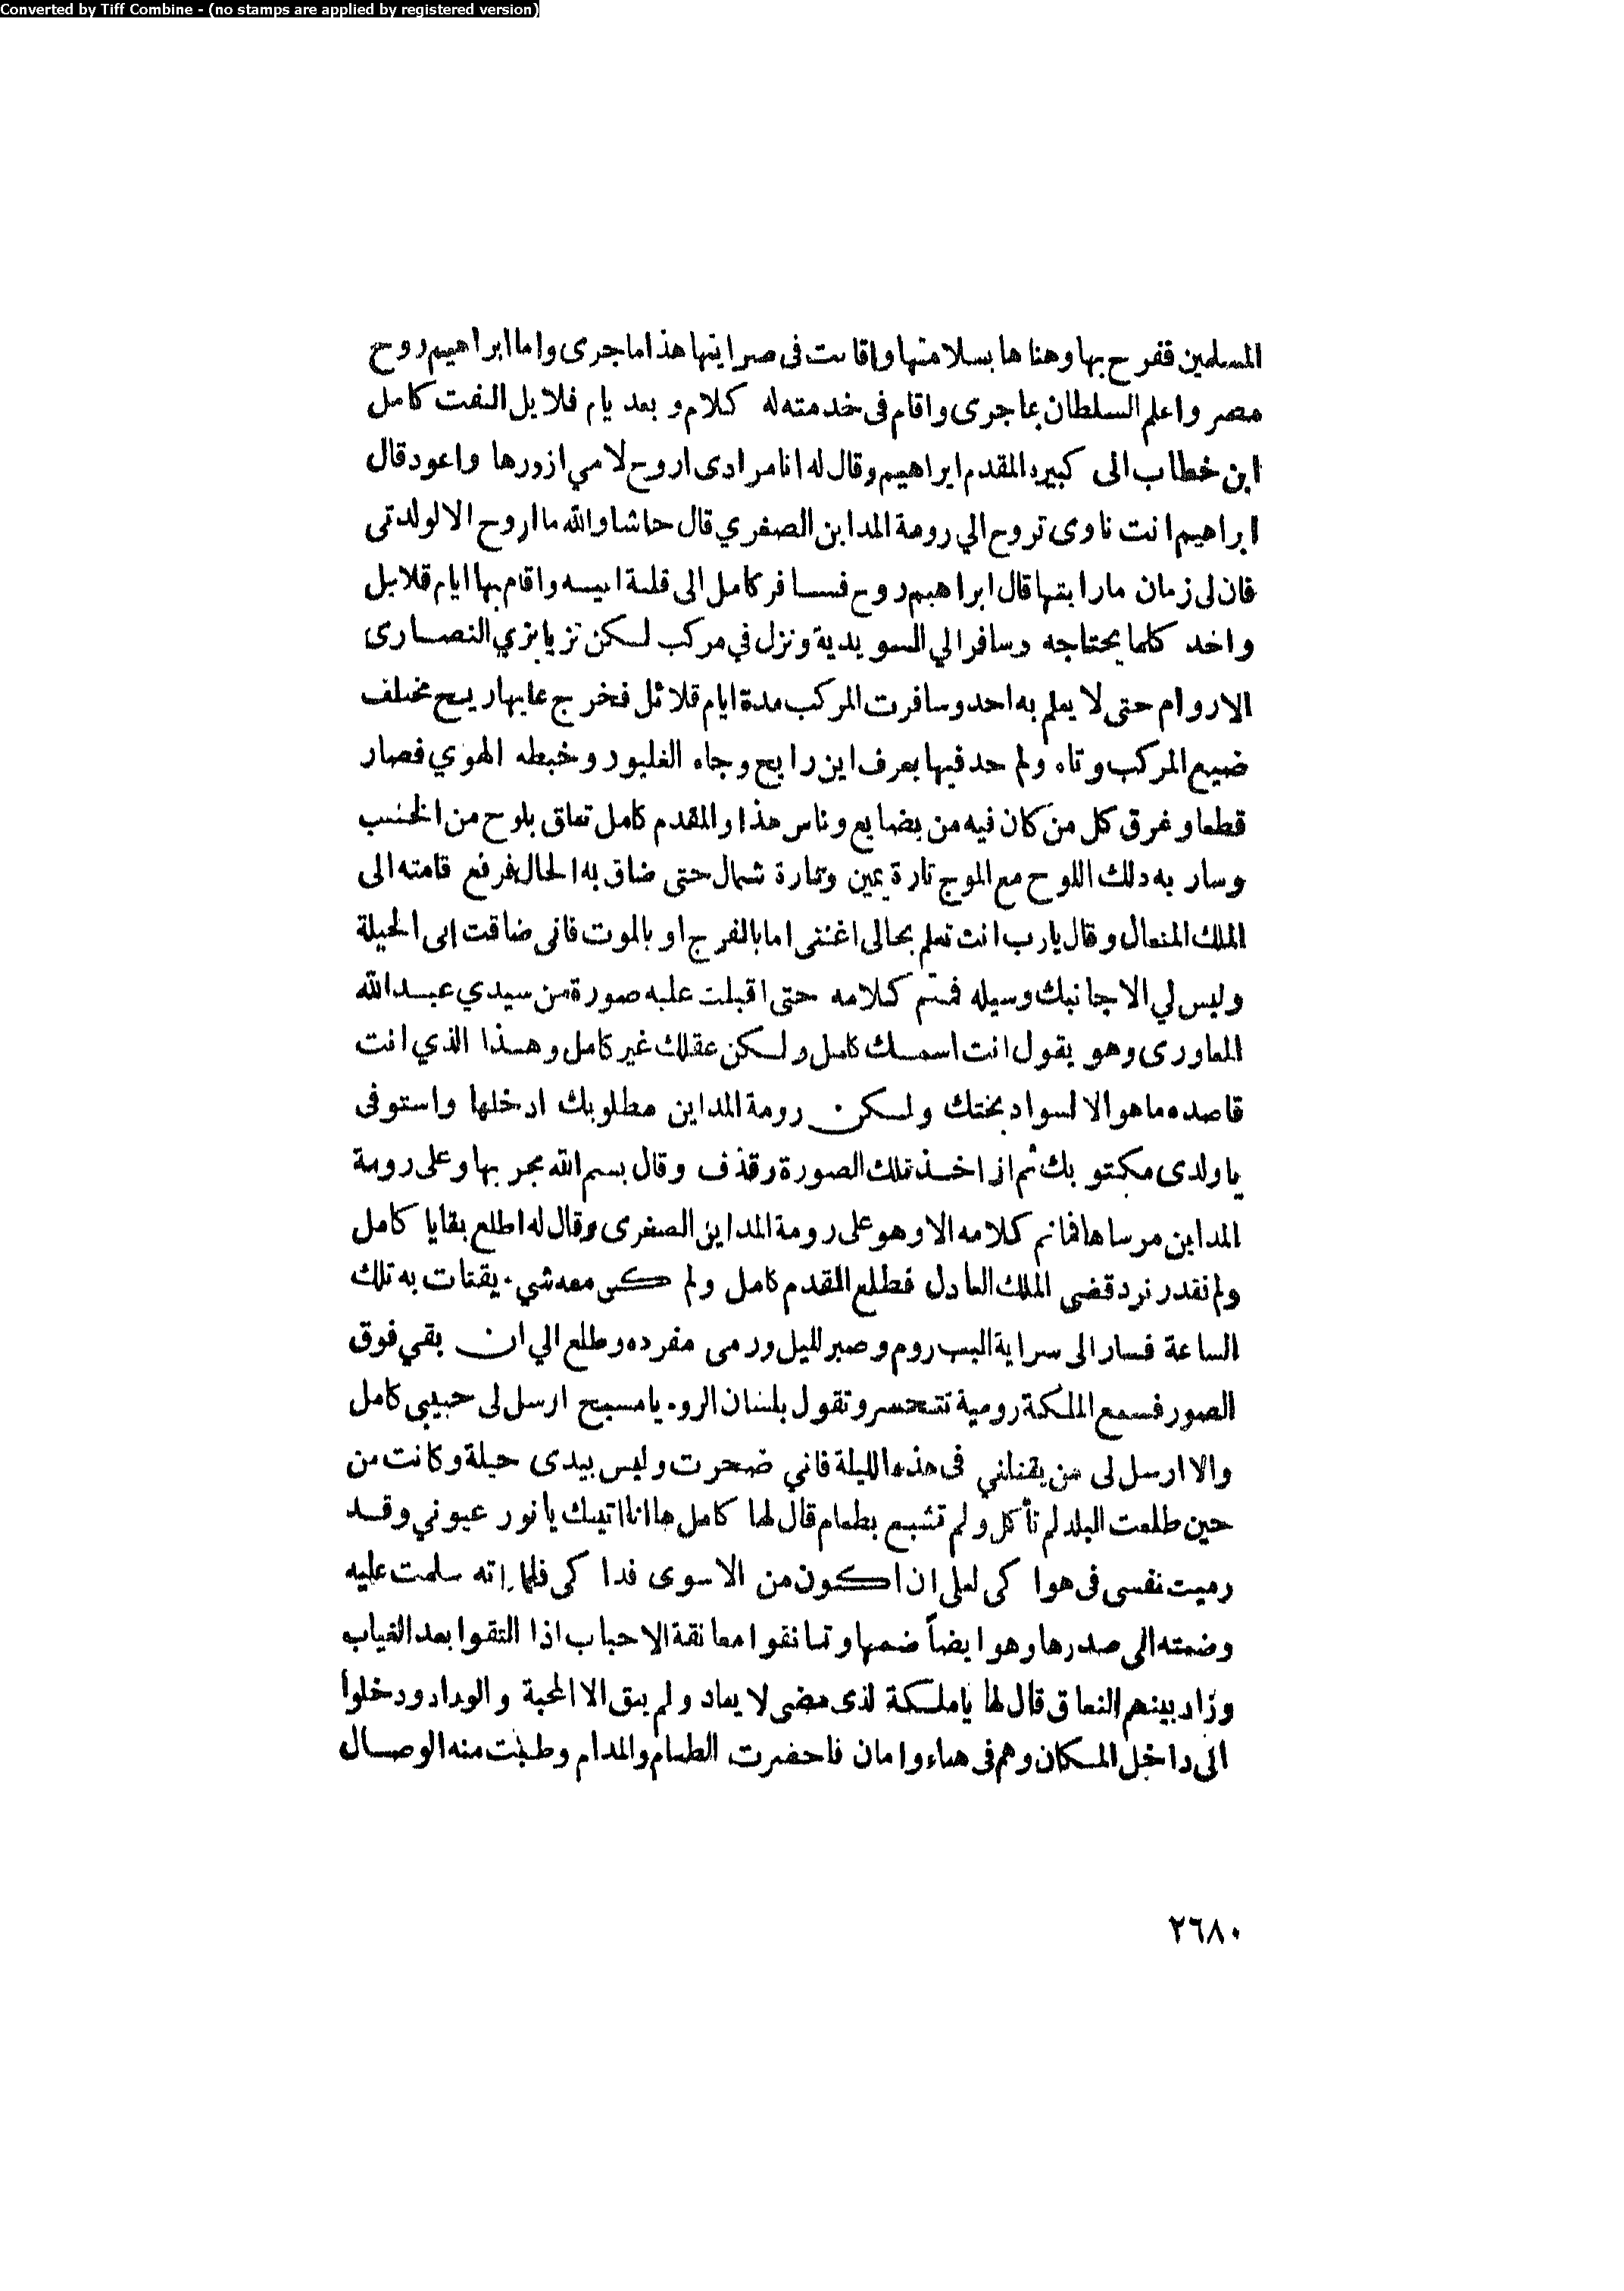 Converted by Tiff Combine - (no stamps are applied by registered version)
المسلمين ففرح بها وهناها بسلامتها واقامت فى صرايتها هذا ما جرى واما ابراهيم روح
مصر واعلم السلطان بما جرى واقام فى خدمته له كلام و بعد يام قلايل التفت كامل
ابن خطاب الى كبيره المقدم ابراهيم وقال له انا مرادى اروح لامي ازورها واعود قال
ابراهيم انت ناوى تروح الي رومة المداين الصغري قال حاشا والله ما اروح الا لولدتى
فان لى زمان مارايتها قال ابراهيم روح فسافر كامل الى قلعة ابيسه واقام بها ايام قلايل
واخد كلما يحتاجه وسافر الي السويدية ونزل في مركب لكن تزيا بزي النصارى
الاروام حتى لا يعلم به احد وسافرت المركب مدة ايام قلائل فخرج عليها ريح مختلف
ضيع المركب وتاه ولم حد فيها يعرف اين رايح وجاه الغليور وخبطه الهوي فصار
قطعا وغرق كل من كان فيه من بضايع وناس هذا والمقدم كامل تعلق بلوح من الخشب
وسار به دلك اللوح مع الموج تارة يمين وتارة شمال حتى ضاق به الحال فرفع قامته الى
الملك المتعال وقال يارب انت تعلم بحالى اغتنى اما بالفرج او بالموت فانى ضاقت بى الحيلة
وليس لي الا جانبك وسيله فمتم كلامه حتى اقبلت عليه صورة من سيدي عبد الله
المعاورى وهو يقول انت اسمك كامل ولكن عقلك غير كامل وهذا الذي انت
قاصده ما هو الا لسواد بختك ولكن رومة المداين مطلوبك ادخلها واستوفى
يا ولدى مكتوبك ثم ان اخذ تلك الصورة وقذف وقال بسم الله مجربها وعلى رومة
المداين مرساها فماتم كلامه الا وهو على رومة المداين الصغرى وقال له اطلع بقايا كامل
ولم نقدر نرد قضى الملك العادل فطلع المقدم كامل ولم كى معه شي يقتات به تلك
الساعة فسار الى سراية البب روم وصبر لليل ورمى مفرده وطلع الي ان بقي فوق
الصور فسمع الملكة رومية تتحسر وتقول بلسان الرو. يا مسيح ارسل لى حبيبى كامل
والا ارسل لى من يقتلني فى هذه الليلة فاني ضجرت وليس بيدى حيلة وكانت من
حين طلعت البلد لم تأكل ولم تشبع بطعام قال لها كامل ها انا اتيك يا نور عيوني وقد
رميت نفسى فى هوا كى لعلى ان اكون من الاسوى فدا كى فلما راته سلمت عليه
وضمته الى صدرها وهو ايضاً ضمها وتعانقوا معانقة الاحباب اذا التقوا بعد الغياب
وزاد بينهم التعاق قال لها يا ملكة لذى مضى لا يعاد ولم يبق الا المحبة والوداد ودخلوا
الى داخل المكان وهم فى هناء وامان فاحضرت الطعام والمدام وطلبت منه الوصال
٢٦٨٠